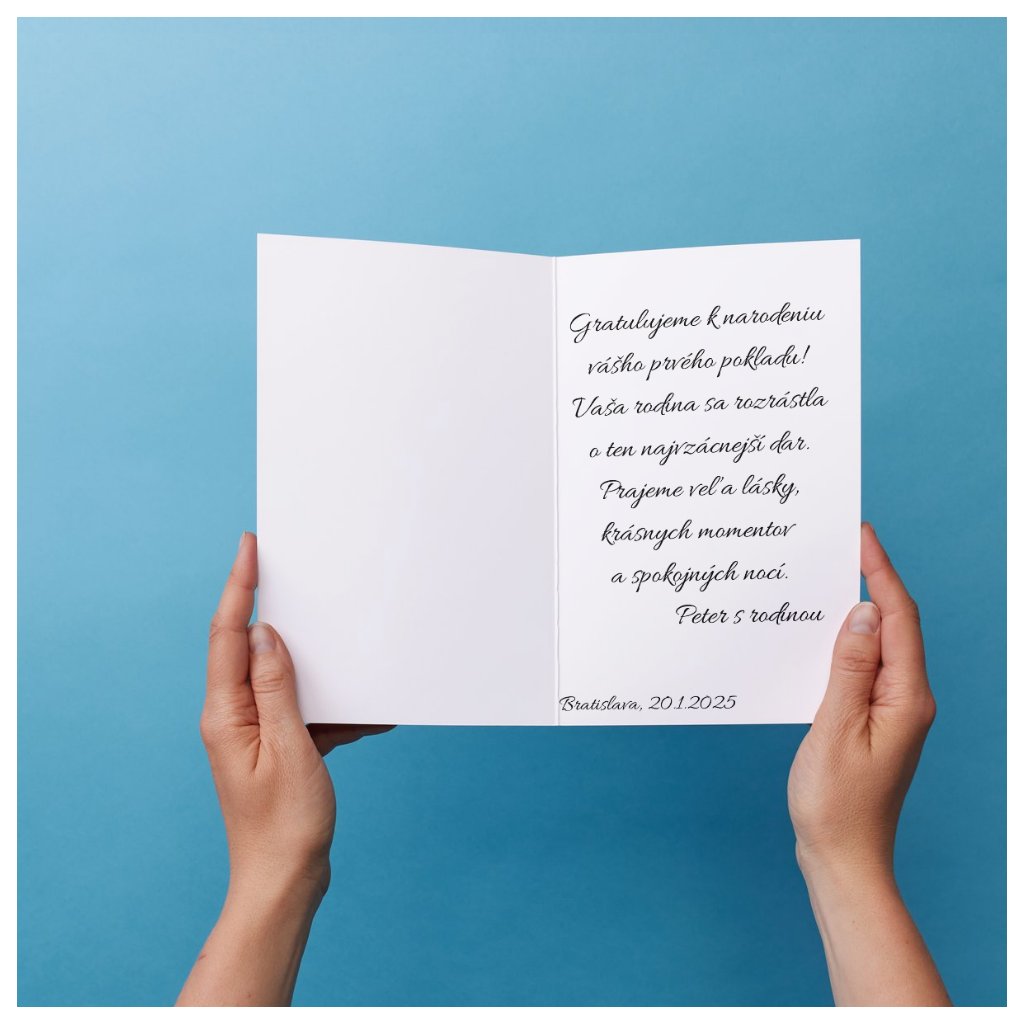 Gratulujeme k narodeniu
vášho prvého pokladu!
Vaša rodina sa rozrástla
o ten najvzácnejší dar.
Prajeme veľa lásky,
krásnych momentov
a spokojných nocí.
Peter s rodinou
Bratislava, 20.1.2025